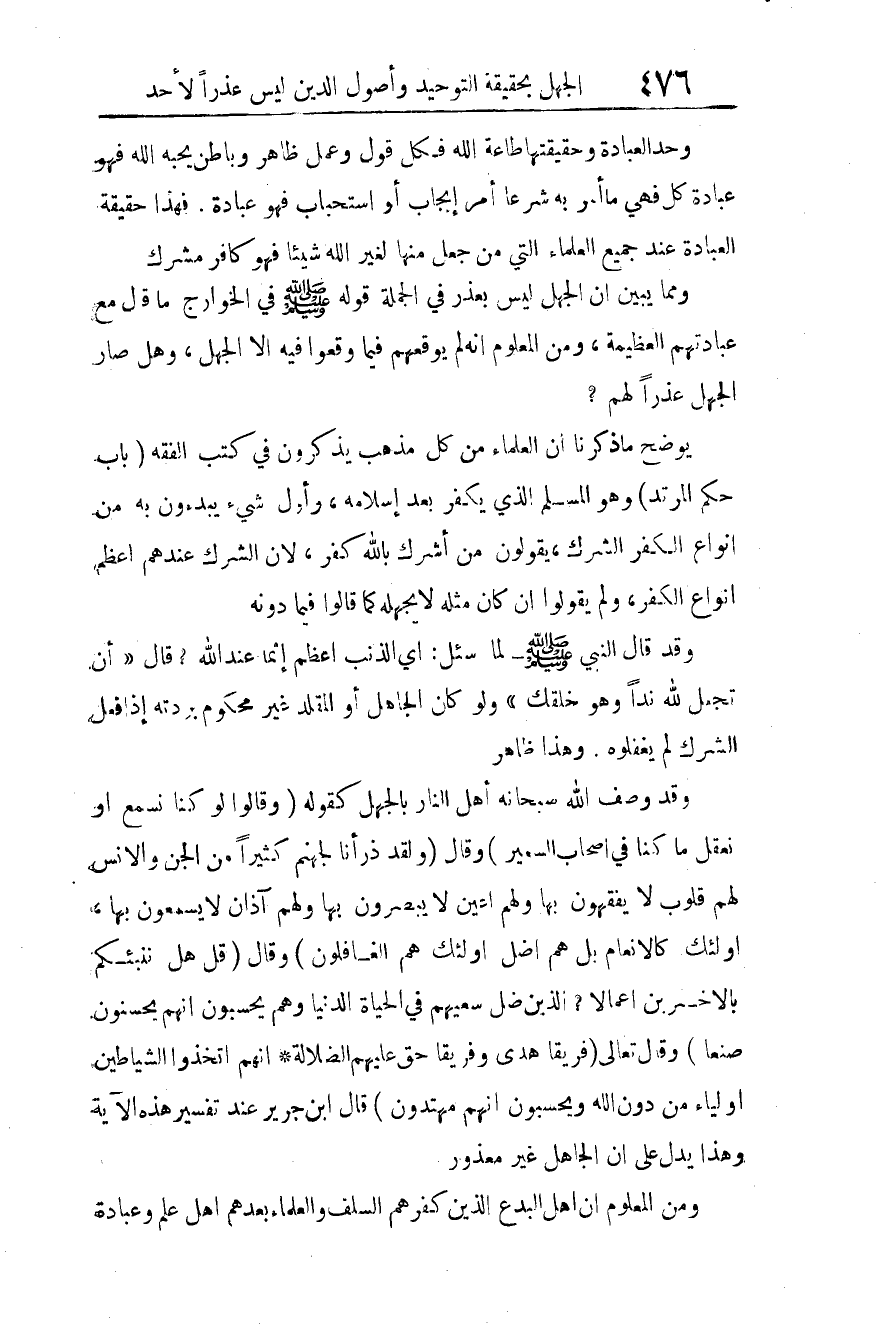 ٤٧٦ الجهل بحقيقة التوحيد وأصول الدين ليس عذراً لأحد
وحد العبادة وحقيقتها طاعة الله فكل قول وعمل ظاهر وباطن يحبه الله فهو
عبادة كل فهي مأمر به شرعا أمر إيجاب أو استحباب فهو عبادة . فهذا حقيقة
العبادة عند جميع العلماء التي من جعل منها لغير الله شيئا فهو كافر مشرك
ومما يبين ان الجهل ليس بعذر في الجملة قوله ﷺ في الخوارج ما قال مع
عبادتهم العظيمة ، ومن المعلوم انه لم يوقعهم فيما وقعوا فيه الا الجهل ، وهل صار
الجهل عذراً لهم ؟
يوضح ماذكرنا ان العلماء من كل مذهب يذكرون في كتب الفقه ( باب
حكم المرتد) وهو المسلم الذي يكفر بعد إسلامه ، وأول شيء يبدءون به من
انواع الكفر الشرك ،يقولون من أشرك بالله كفر ، لان الشرك عندهم اعظم
انواع الكفر، ولم يقولوا ان كان مثله لايجهله كما قالوا فيما دونه
وقد قال النبي ﷺ ـ لما سئل: اي الذنب اعظم إثما عند الله ؟ قال « أن
تجعل لله نداً وهو خلقك » ولو كان الجاهل أو المقلد غير محكوم بردته إذا فعل
الشرك لم يغفلوه . وهذا ظاهر
وقد وصف الله سبحانه أهل النار بالجهل كقوله ( وقالوا لو كنا نسمع او
نعقل ما كنا في اصحاب السعير ) وقال (ولقد ذرأنا لجهنم كثيراً من الجن والانس
لهم قلوب لا يفقهون بها ولهم اعين لا يبصرون بها ولهم آذان لايسمعون بها ،
اولئك كالانعام بل هم اضل اولئك هم الغافلون ) وقال ( قل هل ننبئكم
بالاخسرين اعمالا ؟ الذين ضل سعيهم في الحياة الدنيا وهم يحسبون انهم يحسنون
صنعا ) وقال تعالى (فريقا هدى وفريقا حق عليهم الضلالة* انهم اتخذوا الشياطين
اولياء من دون الله ويحسبون انهم مهتدون ) قال ابن جرير عند تفسير هذه الآية
وهذا يدل على ان الجاهل غير معذور
ومن المعلوم ان اهل البدع الذين كفرهم السلف والعلماء بعدهم اهل علم وعبادة